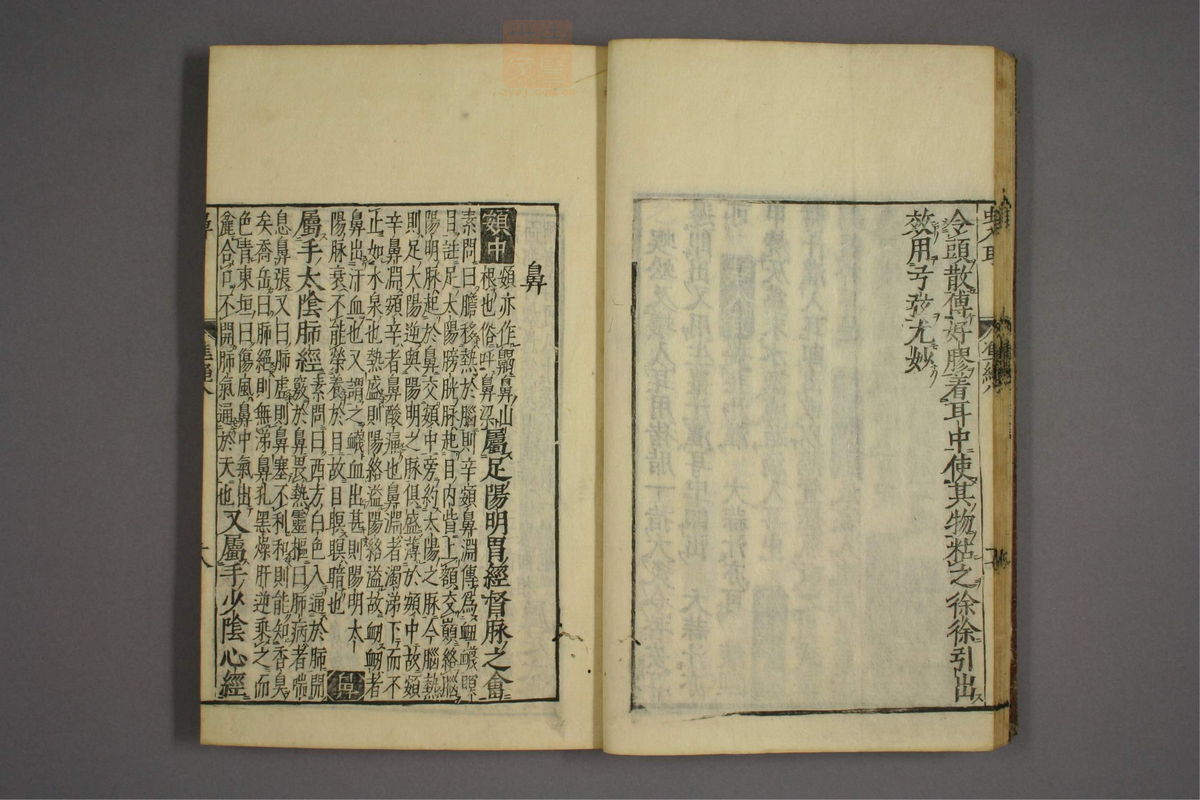 令頭散傅好膠着耳中使其物粘之徐徐引出
效用弓弦尤妙
鼻
頞中
頞亦作齃鼻山
根也俗呼鼻梁
屬足陽明胃經督脉之會
素問曰膽移熱於腦則辛頞鼻淵傳爲衄衊瞑
目註足太陽膀胱脉起目内眥上額交巔絡腦
陽明脉起於鼻交頞中旁約太陽之脉今腦熱
則足太陽逆與陽明之脉俱盛薄於頞中故頞
辛鼻淵頞辛者鼻酸痛也鼻淵者濁涕下而不
止如水泉也熱盛則陽絡溢陽絡溢故衄衄者
鼻出汗血也又謂之衊血出甚則陽明太
陽脉衰不能榮養於目故目瞑瞑暗也
鼻
屬手太陰肺經
素問曰西方白色入通於肺開
竅於鼻畏熱靈樞曰肺病者喘
息鼻張又曰肺虚則鼻塞不利和則能知香臭
矣喬岳曰肺絕則無涕鼻孔黑燥肝逆乘之而
色青東垣曰傷風鼻中氣出
麄合口不開肺氣通於天也
又屬手少陰心經